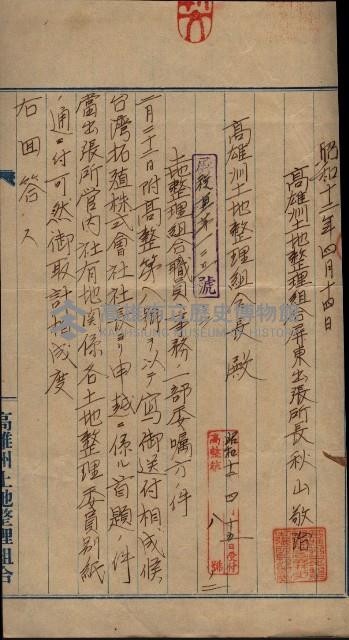 昭和十二年四月十四日
高雄州土地整理組合屏東出張所長秋山敬治
高雄州土地整理組合長殿
號
昭和十二、四、十五日受付
高整秘 八 號
土地整理組合職員ニ事務ノ一部委囑方ノ件
二月二十二日附高整第八號ヲ以テ寫御送付相成候
台湾拓殖株式會社社長ヨリ申越ニ係ル首題ノ件
當出張所管內社有地関係各土地整理委員別紙
ノ通ニ付可然御取計相成度
右回答ス
高雄州土地整理組合
高雄市立歷史博物館
KAOHSIUNG MUSEUM OF HISTORY